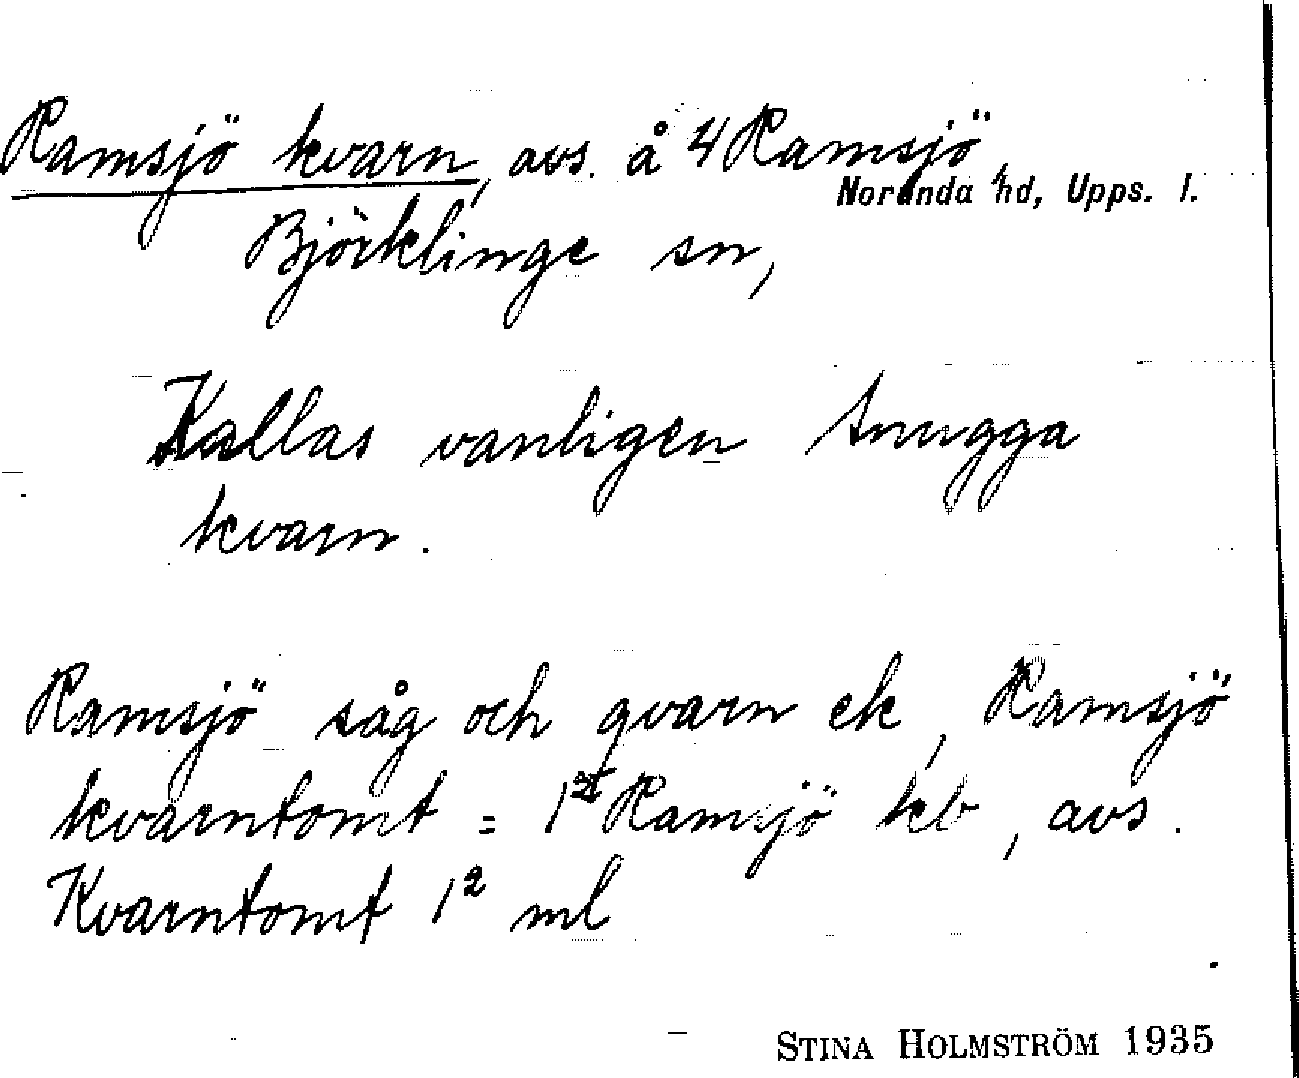 Ramsjö kvarn, avs. å 4 Ramsjö,
Norunda hd, Upps. l.
Björklinge sn,
Kallas vanligen Snugga
kvarn.
Ramsjö såg och qvarn ek, Ramsjö
kvarntomt = 1 Ramsjö keb, avs.
Kvarntomt 1² ml
STINA HOLMSTRÖM 1935